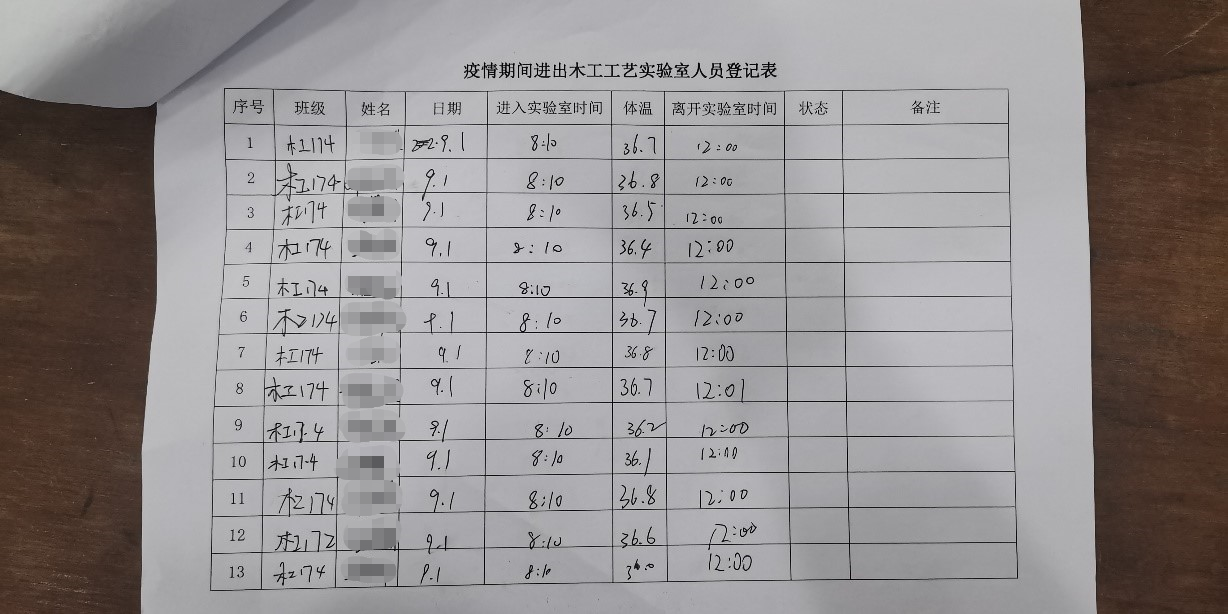 疫情期间进出木工工艺实验室人员登记表
序号 班级 姓名 日期 进入实验室时间 体温 离开实验室时间 状态 备注
1 木工174 9.1 8:10 36.7 12:00
2 木工174 9.1 8:10 36.8 12:00
3 木工174 9.1 8:10 36.5 12:00
4 木工174 9.1 8:10 36.4 12:00
5 木工174 9.1 8:10 36.9 12:00
6 木工174 9.1 8:10 36.7 12:00
7 木工174 9.1 8:10 36.8 12:00
8 木工174 9.1 8:10 36.7 12:01
9 木工174 9.1 8:10 36.2 12:00
10 木工174 9.1 8:10 36.1 12:00
11 木工174 9.1 8:10 36.8 12:00
12 木工172 9.1 8:10 36.6 12:00
13 木工174 9.1 8:10 12:00